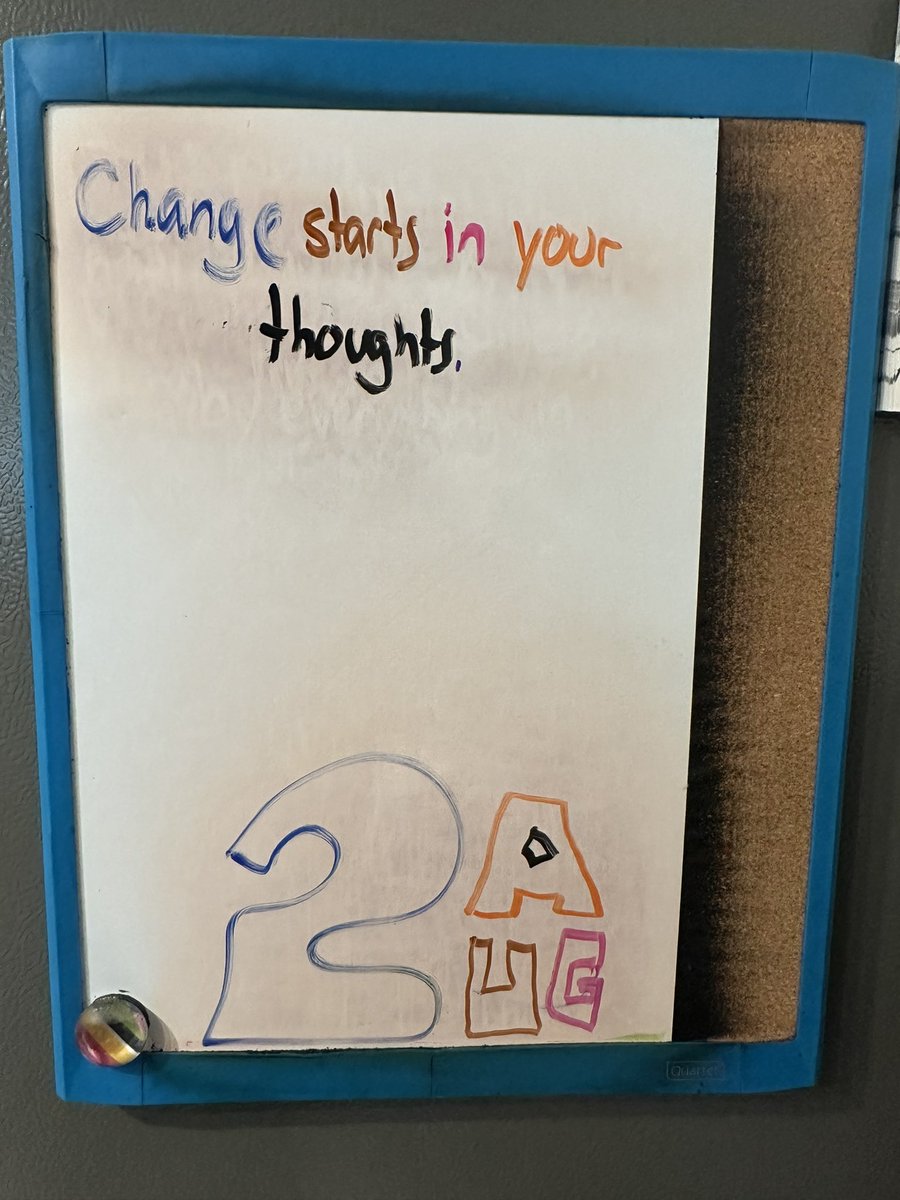 Change starts in your
thoughts.
2 AUG
Quartet